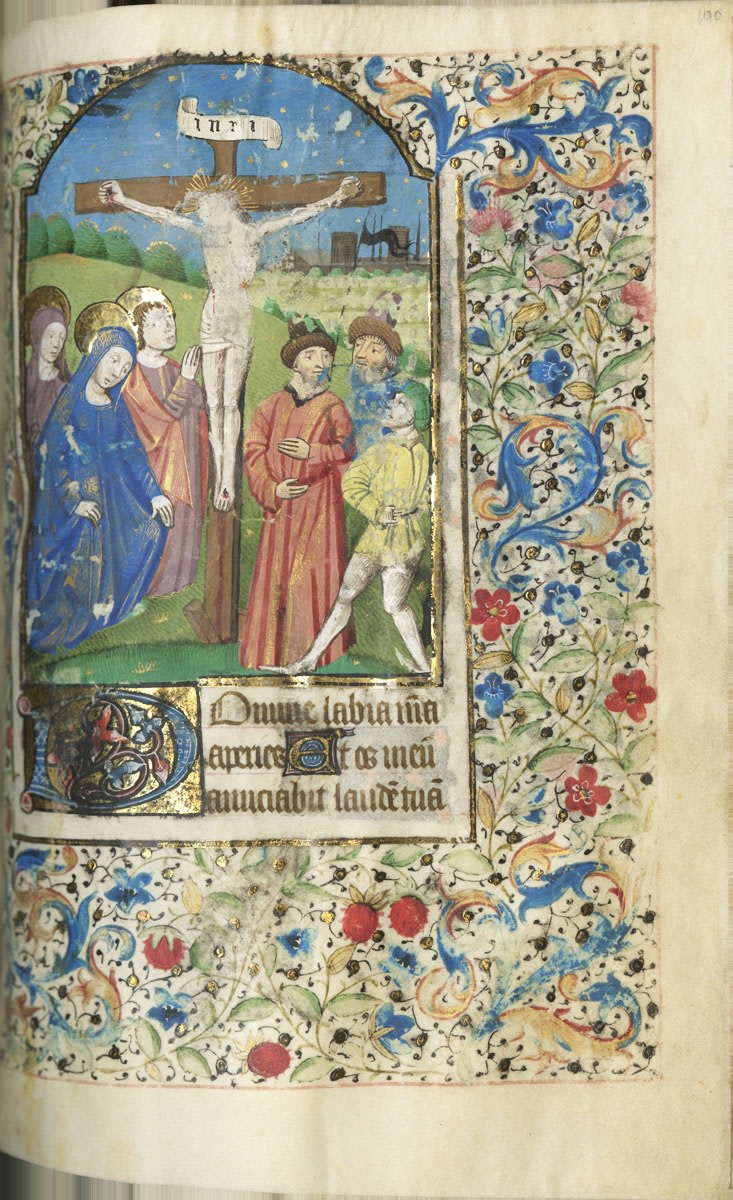 inri
Domine labia m̄a
aperies Et os meū
anūciabit laudē tuā